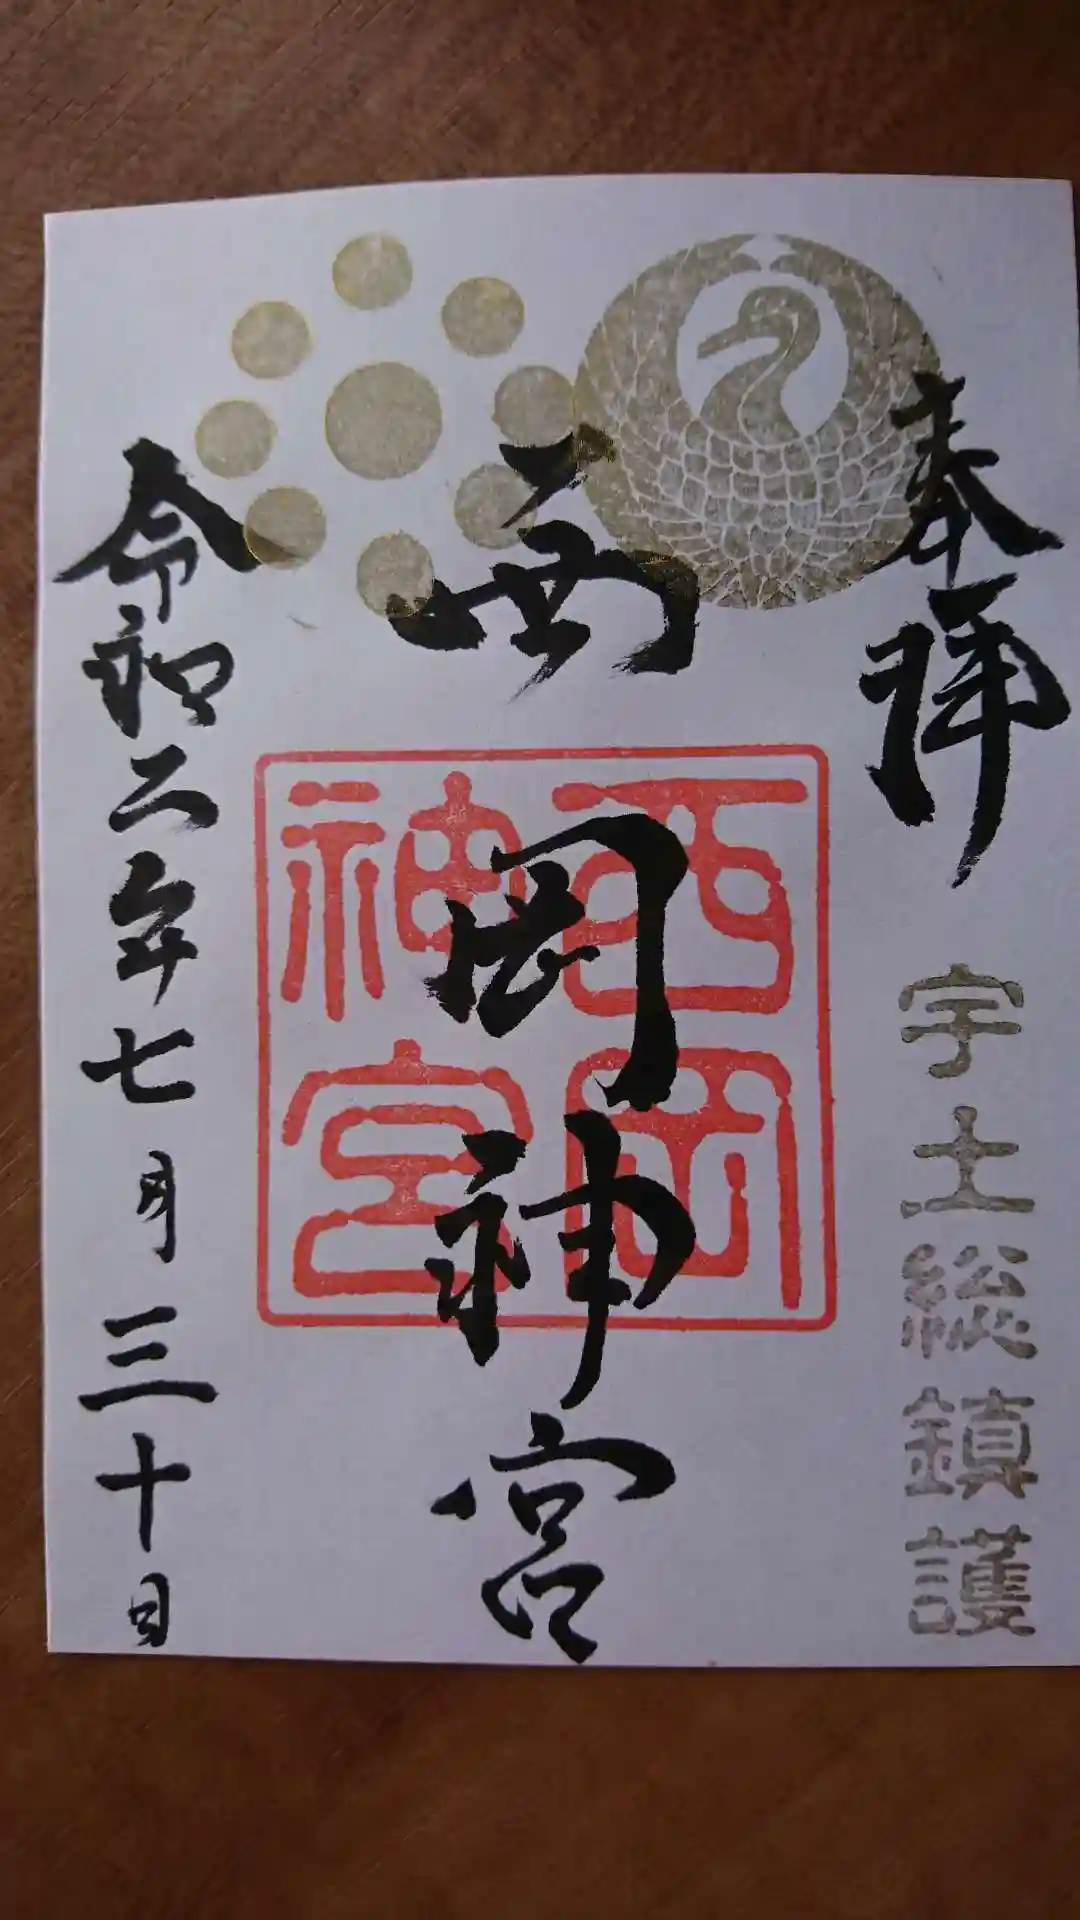 奉拝
宇土総鎮護
西岡神宮
西岡
神宮
令和二年七月三十日